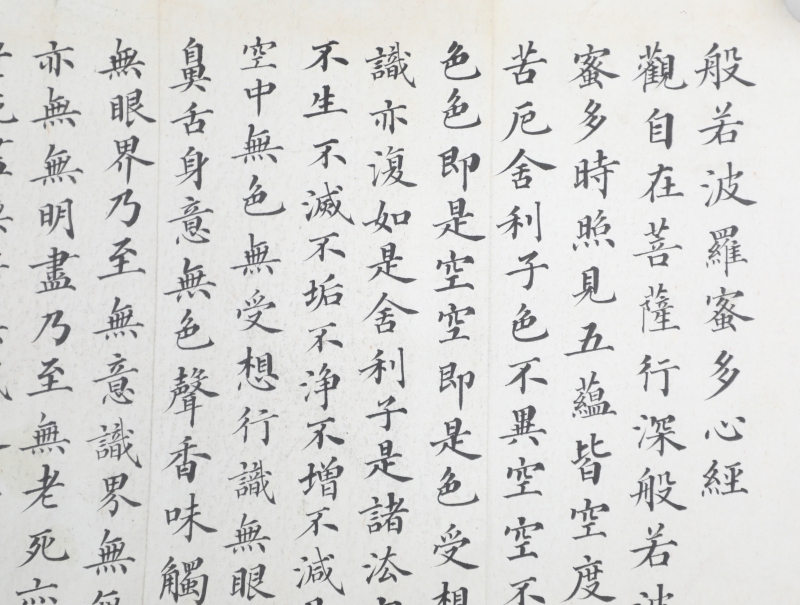 般若波羅蜜多心經
觀自在菩薩行深般若波
蜜多時照見五蘊皆空度
苦厄舍利子色不異空空不
色色即是空空即是色受想
識亦復如是舍利子是諸法
不生不滅不垢不淨不增不減
空中無色無受想行識無眼
鼻舌身意無色聲香味觸
無眼界乃至無意識界無無
亦無無明盡乃至無老死亦